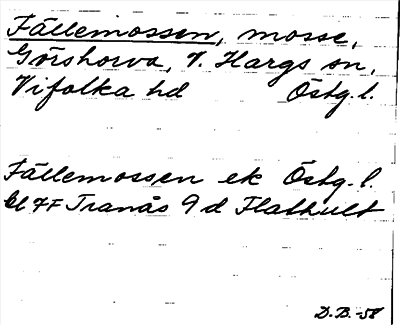 Fällemossen, mosse,
Görshorva, V. Hargs sn,
Vifolka hd Östg. l.
Fällemossen ek Östg. l.
bl 7F Tranås 9 d Flathult
D.B. -58